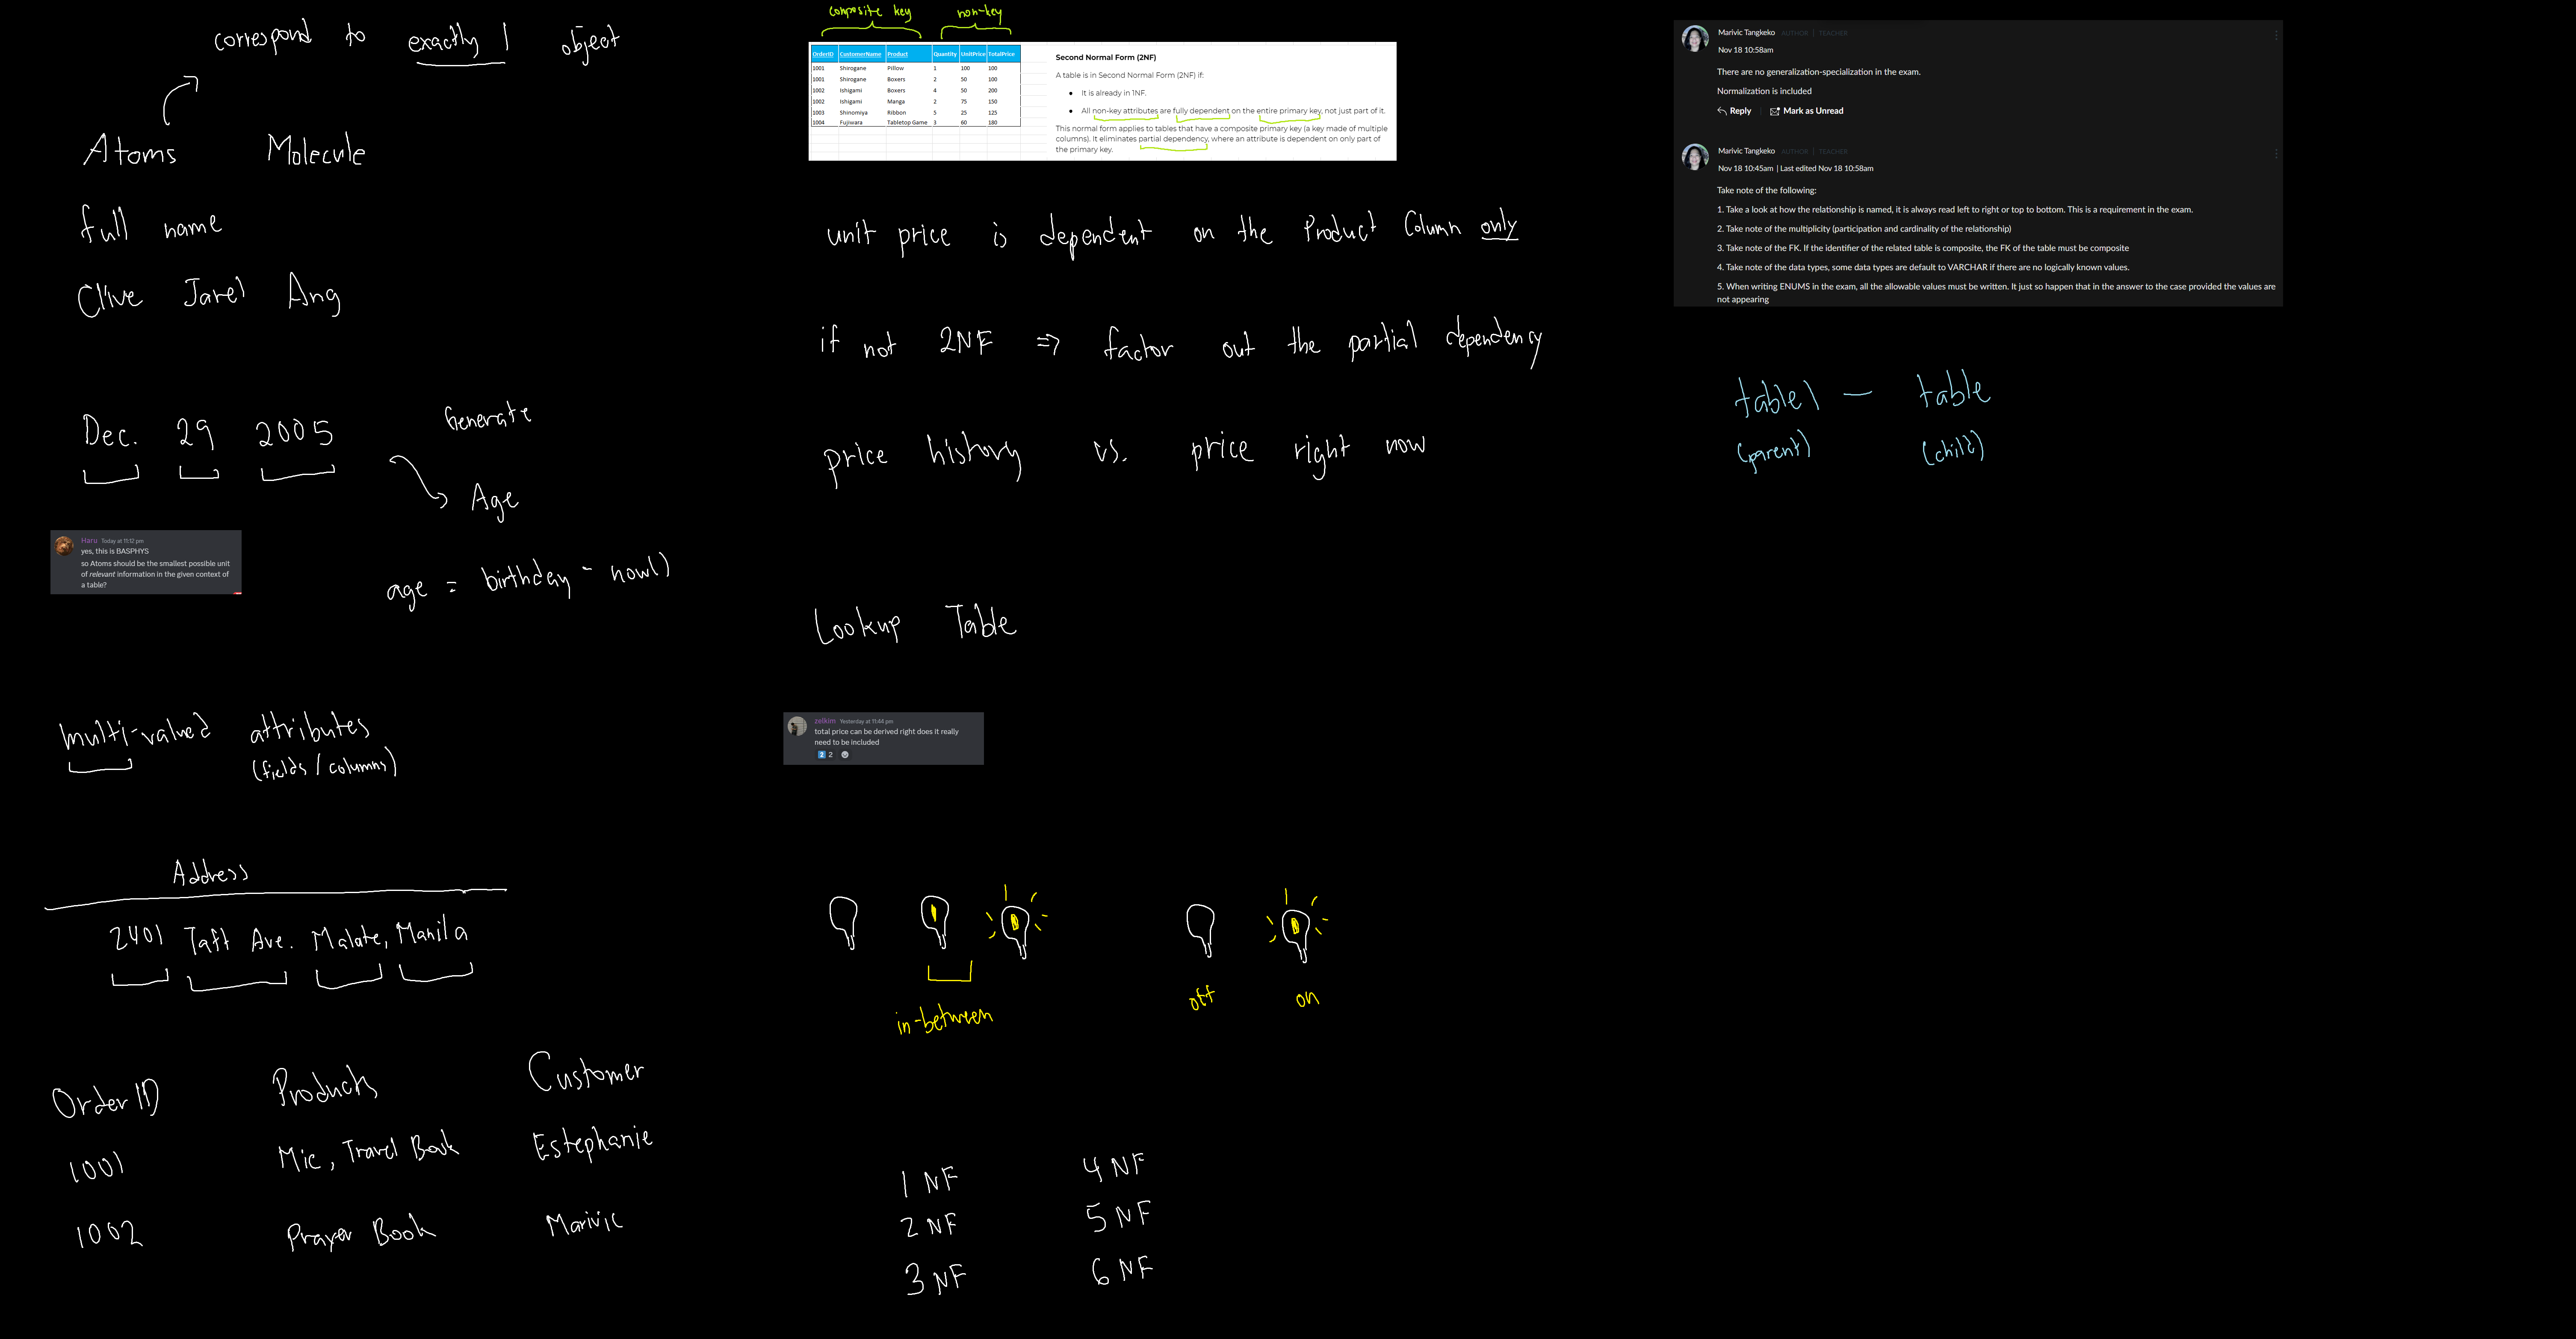 correspond to exactly 1 object
Atoms Molecule
full name
Clive Jarel Ang
Dec. 29 2005
Generate
Age
age = birthday - now()
Haru Today at 11:12 pm
yes, this is BASPHYS
so Atoms should be the smallest possible unit
of relevant information in the given context of
a table?
multi-valued attributes
(fields / columns)
Address
2401 Taft Ave. Malate, Manila
OrderID Products Customer
1001 Mic, Travel Book Estephanie
1002 Prayer Book Marivic
composite key non-key
OrderID CustomerName Product Quantity UnitPrice TotalPrice
1001 Shirogane Pillow 1 100 100
1001 Shirogane Boxers 2 50 100
1002 Ishigami Boxers 4 50 200
1002 Ishigami Manga 2 75 150
1003 Shinomiya Ribbon 5 25 125
1004 Fujiwara Tabletop Game 3 60 180
Second Normal Form (2NF)
A table is in Second Normal Form (2NF) if:
• It is already in 1NF.
• All non-key attributes are fully dependent on the entire primary key, not just part of it.
This normal form applies to tables that have a composite primary key (a key made of multiple
columns). It eliminates partial dependency, where an attribute is dependent on only part of
the primary key.
unit price is dependent on the Product Column only
if not 2NF => factor out the partial dependency
price history vs. price right now
Lookup Table
zelkim Yesterday at 11:44 pm
total price can be derived right does it really
need to be included
2 2
in-between
off on
1 NF 4 NF
2 NF 5 NF
3 NF 6 NF
Marivic Tangkeko AUTHOR | TEACHER
Nov 18 10:58am
There are no generalization-specialization in the exam.
Normalization is included
Reply | Mark as Unread
Marivic Tangkeko AUTHOR | TEACHER
Nov 18 10:45am | Last edited Nov 18 10:58am
Take note of the following:
1. Take a look at how the relationship is named, it is always read left to right or top to bottom. This is a requirement in the exam.
2. Take note of the multiplicity (participation and cardinality of the relationship)
3. Take note of the FK. If the identifier of the related table is composite, the FK of the table must be composite
4. Take note of the data types, some data types are default to VARCHAR if there are no logically known values.
5. When writing ENUMS in the exam, all the allowable values must be written. It just so happen that in the answer to the case provided the values are
not appearing
table1 — table
(parent) (child)